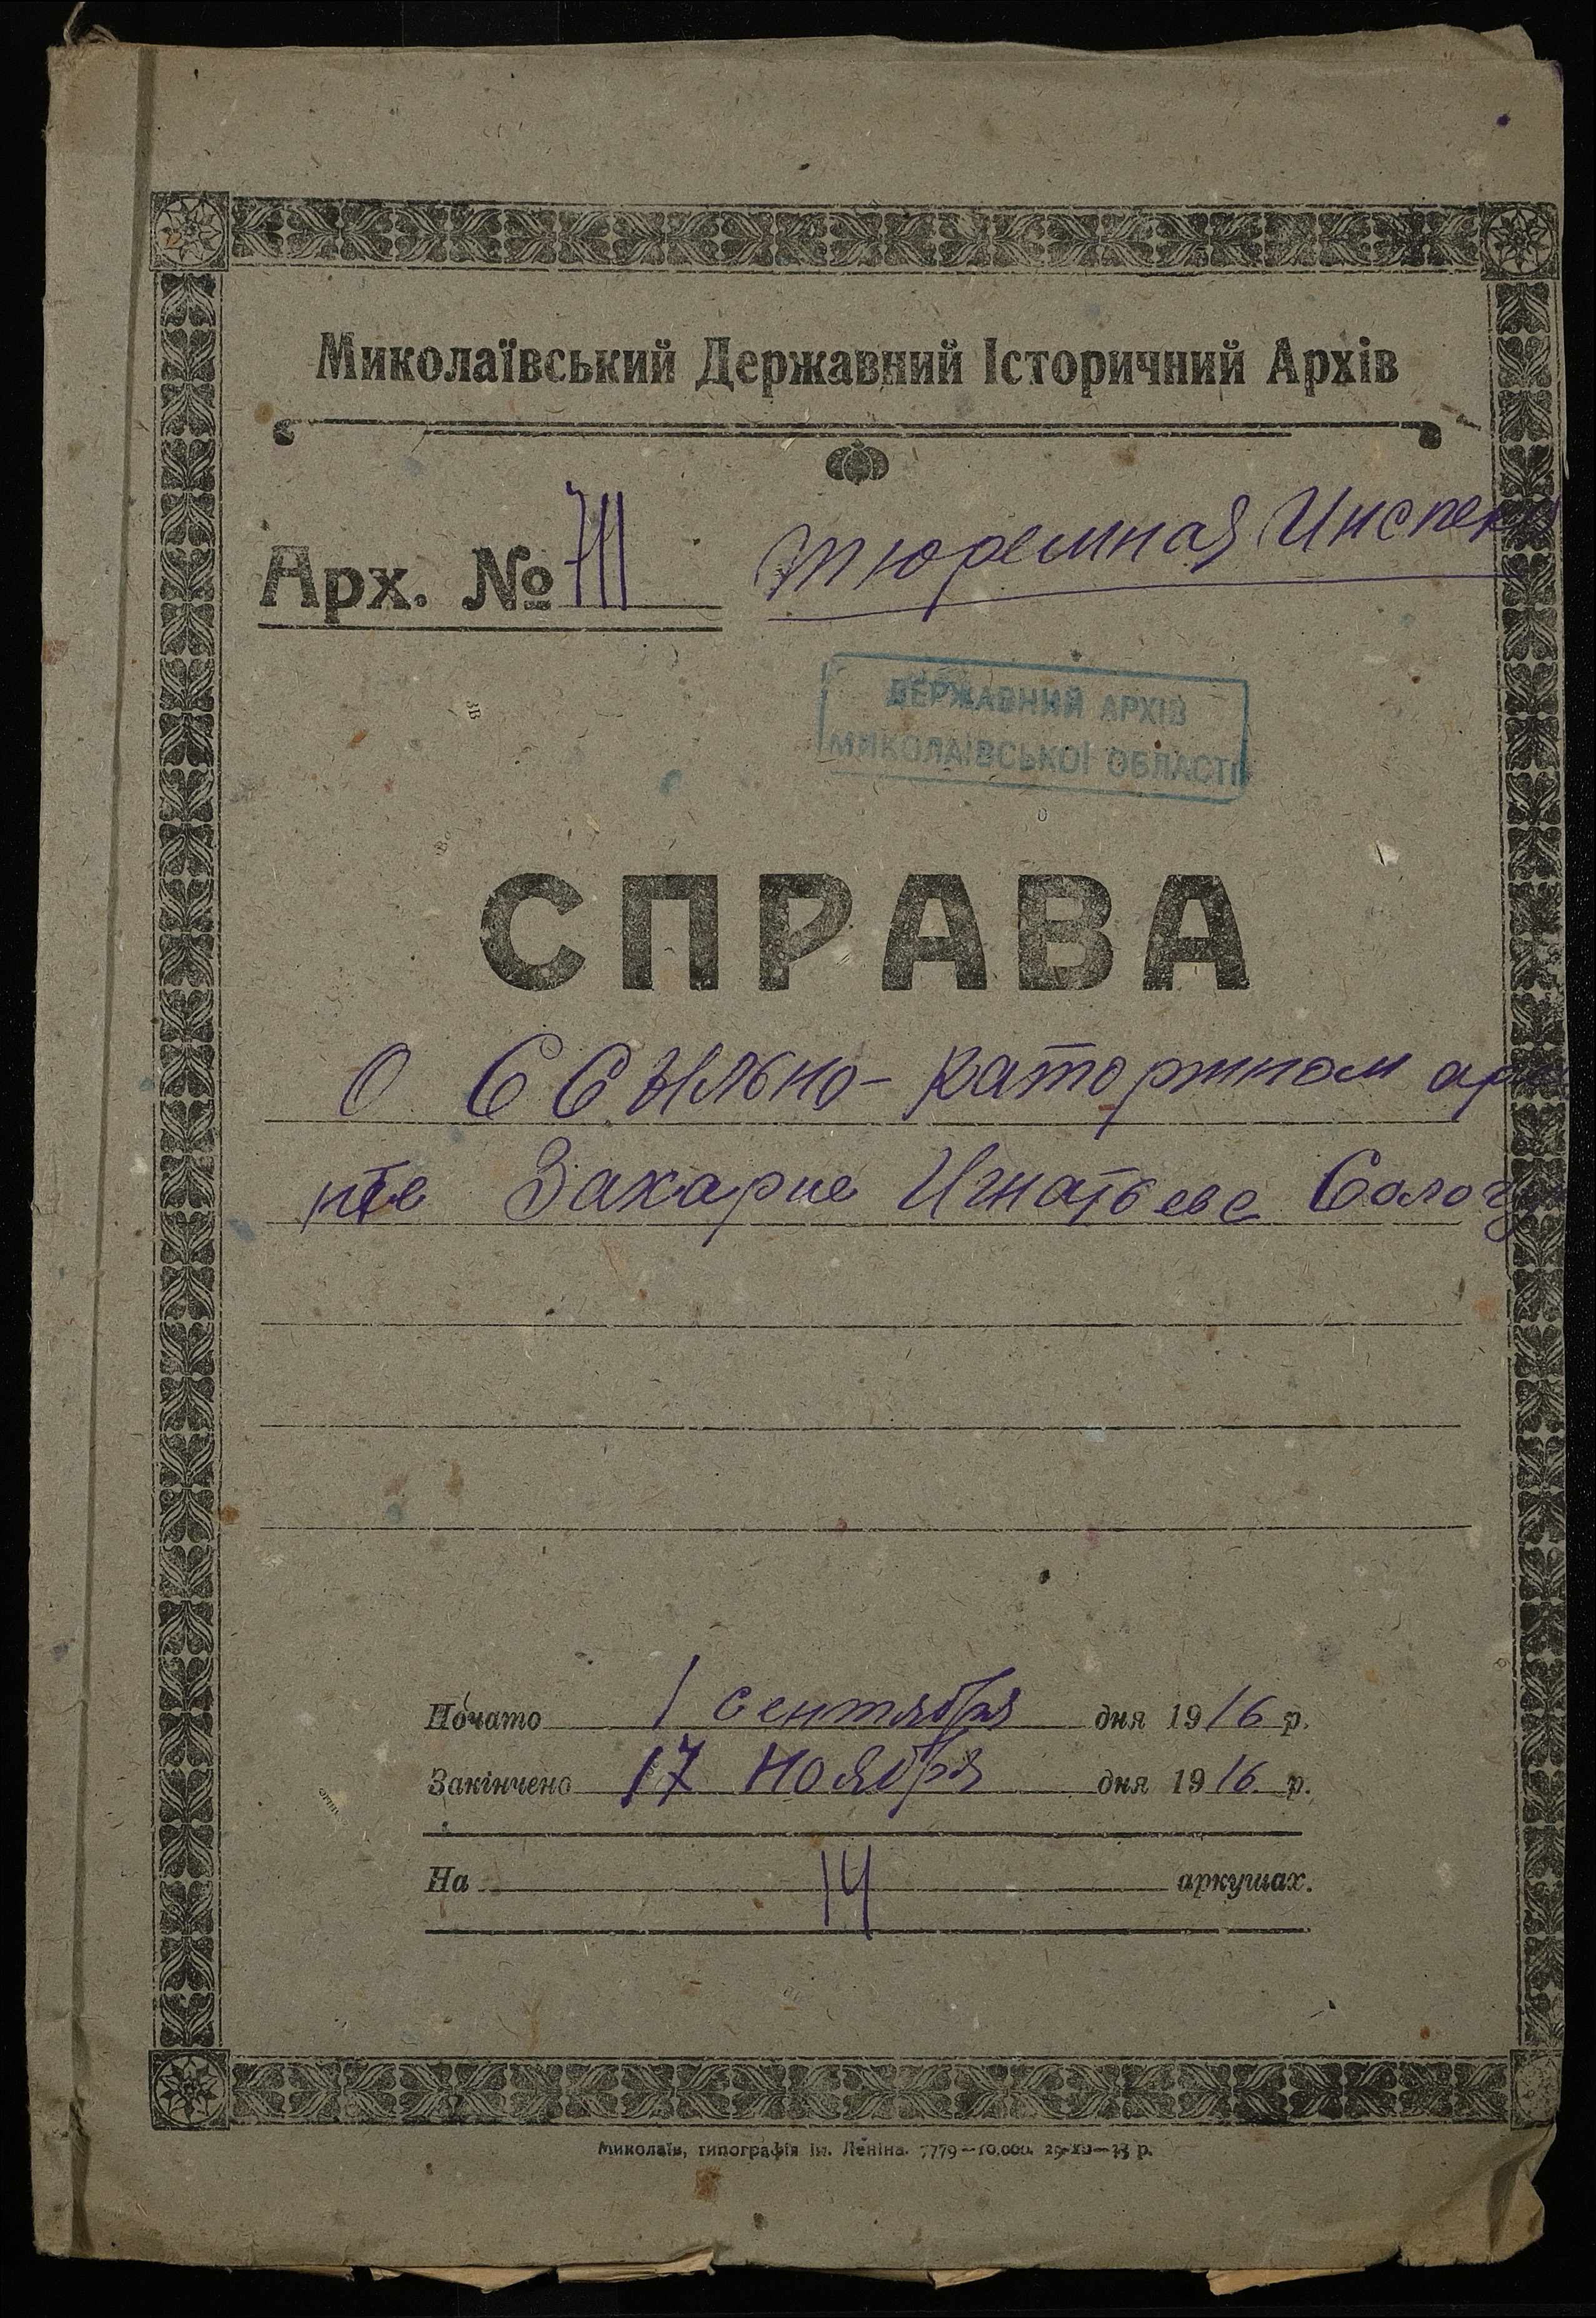 Миколаївський Державний Історичний Архів
Арх. № 711
Тюремная Инспек
ДЕРЖАВНИЙ АРХІВ
МИКОЛАЇВСЬКОЇ ОБЛАСТІ
СПРАВА
О ссыльно-каторжном аре
нте Захарие Игнатьеве Сологу
Почато 1 сентября дня 1916 р.
Закінчено 17 ноября дня 1916 р.
На 14 аркушах.
Миколаїв, типографія ім. Леніна. 7779—10.000.